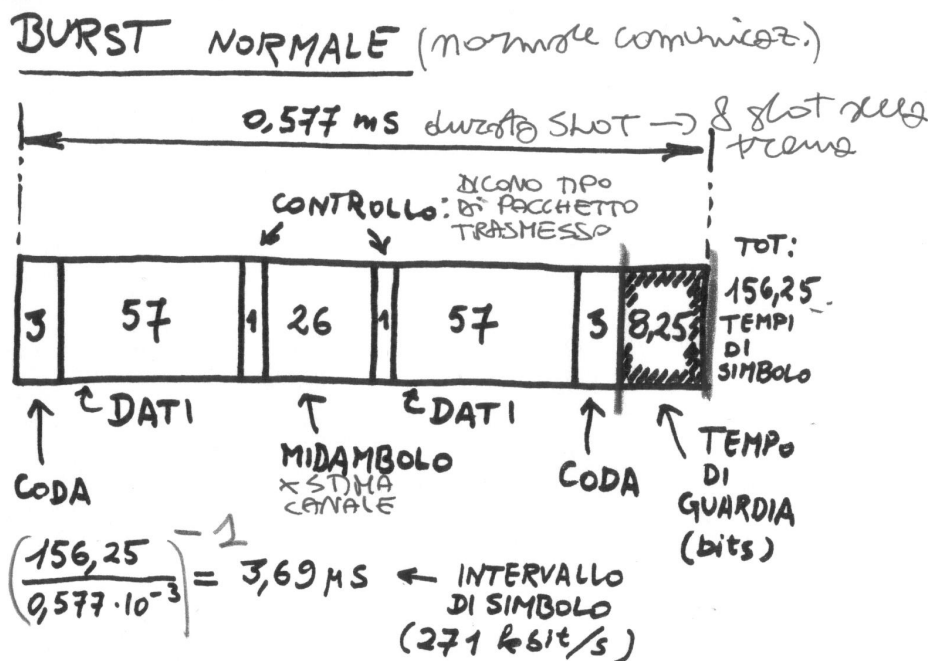 BURST NORMALE (normale comunicaz.)
0,577 ms durata SLOT → 8 slot nella
trama
CONTROLLO: DICONO TIPO
DI PACCHETTO
TRASMESSO
TOT:
156,25
TEMPI
DI
SIMBOLO
3 57 1 26 1 57 3 8,25
DATI DATI
CODA
MIDAMBOLO
x STIMA
CANALE
CODA
TEMPO
DI
GUARDIA
(bits)
(156,25 / 0,577·10⁻³)⁻¹ = 3,69 μs ← INTERVALLO
DI SIMBOLO
(271 kbit/s)